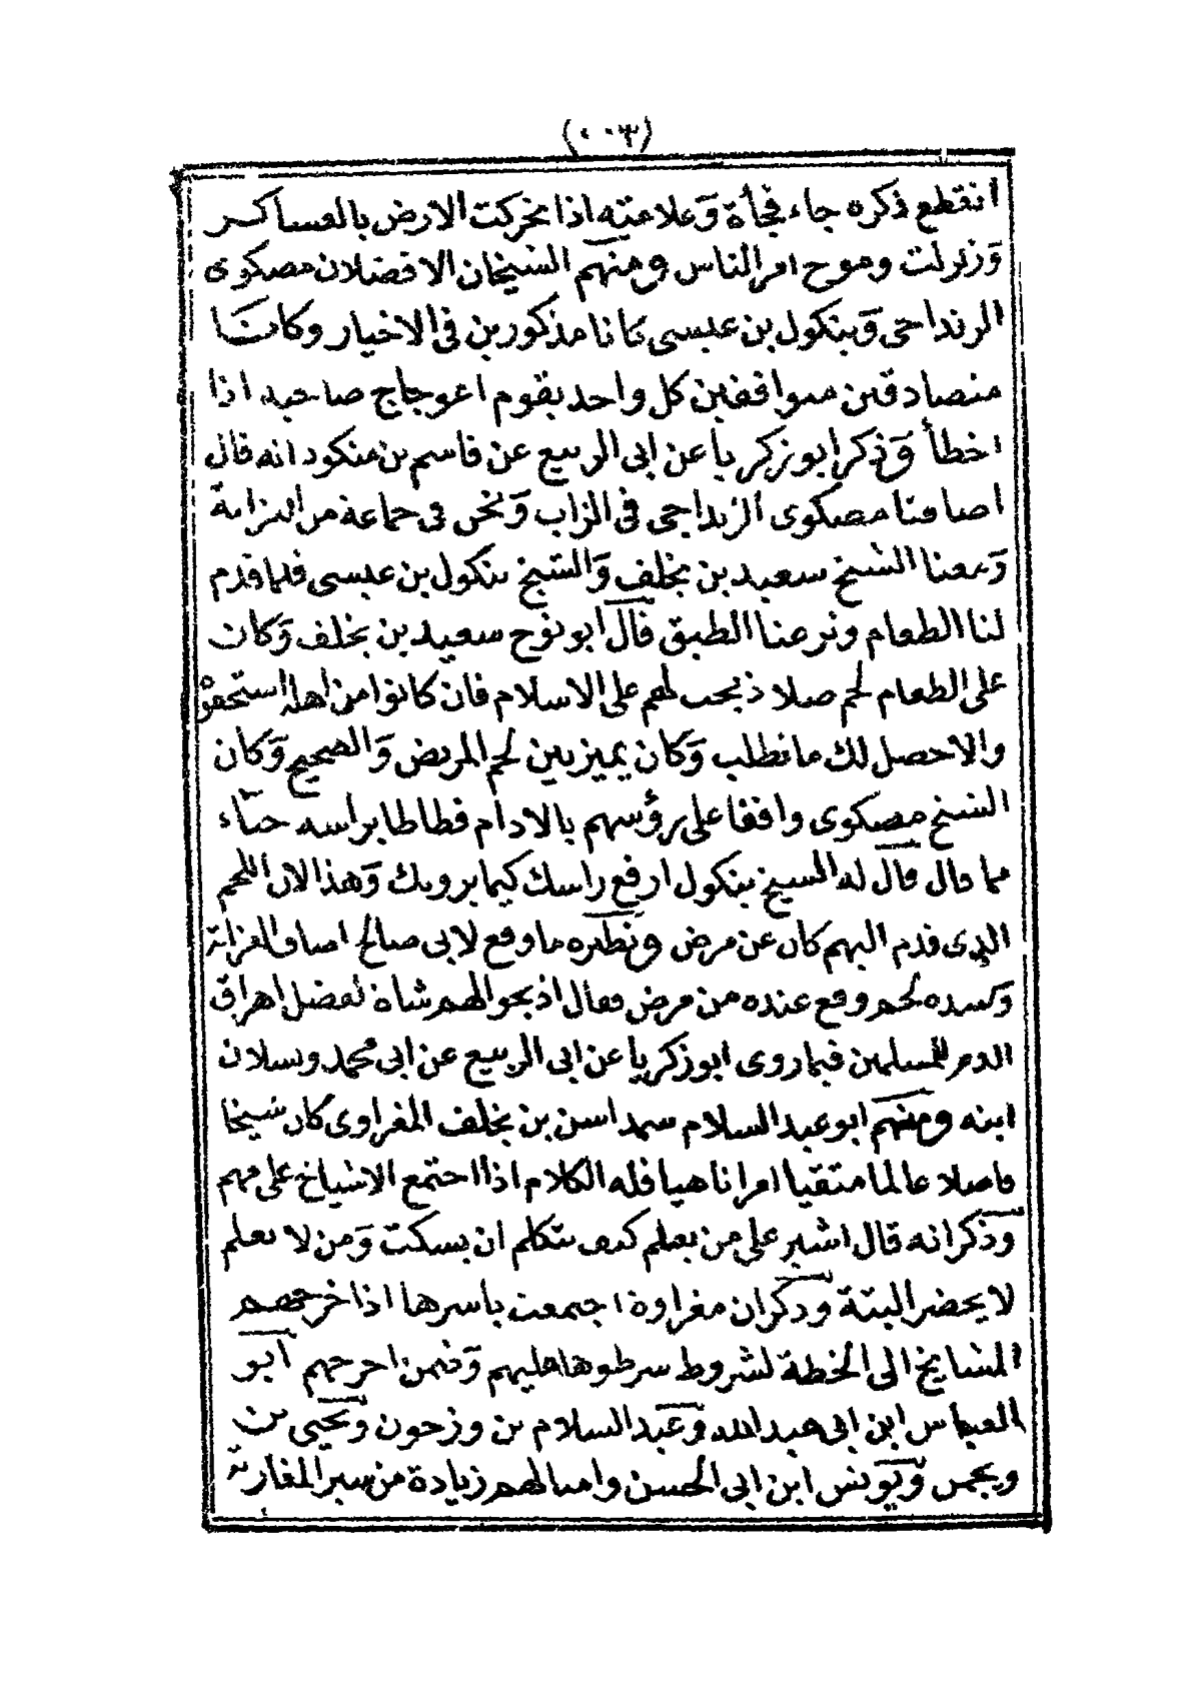 (٤٠٠)
انقطع ذكره جاء فجأة وَعلامته اذا تحركت الارض بالعساكر
وَزلزلت وموج امر الناس ومنهم الشيخان الافضلان مصكوى
الزنداجى وَينكول بن عيسى كانا مذكورين فى الاخيار وكانا
متصادقين متوافقين كل واحد يقوم اعوجاج صاحبه اذا
اخطأ وَذكر ابو زكريا عن ابى الربيع عن قاسم بن منكود انه قال
اضافنا مصكوى الزنداجى فى الزاب وَنحن فى جماعة من العزابة
وَمعنا الشيخ سعيد بن يخلف وَالشيخ ينكول بن عيسى فلما قدم
لنا الطعام ونزعنا الطبق قال ابو نوح سعيد بن يخلف وَكان
على الطعام لحم صلا ذبحت لهم على الاسلام فان كانوا من اهله استحقوه
والا حصل لك ما تطلب وَكان يميز بين لحم المريض وَالصحيح وَكان
الشيخ مصكوى واقفا على رؤسهم بالادام فطاطا براسه حياء
مما قال قال له الشيخ ينكول ارفع راسك كيما يرويك وَهذا لان اللحم
الذى قدم اليهم كان عن مرض ونظيره ما وقع لابى صالح اضاف العزابة
وَعنده لحم وقع عنده من مرض فقال اذبحوا لهم شاة لفضل اهراق
الدم للمسلمين فيما روى ابو زكريا عن ابى الربيع عن ابى محمد ويسلان
ابنه ومنهم ابو عبد السلام سمداسن بن يخلف المغراوى كان شيخا
فاضلا عالما متقيا امرا ناهيا فله الكلام اذا اجتمع الاشياخ على مهم
وَذكر انه قال اشير على من يعلم كيف يتكلم ان يسكت وَمن لا يعلم
لا يحضر البتة وذكر ان مغراوة اجتمعت باسرها اذا خرجهم
المشايخ الى الخطة لشروط شرطوها عليهم وَفيمن اخرجهم ابو
العباس ابن ابى عبد الله وَعبد السلام بن وزجون وَيحيى بن
ويجمن وَيونس ابن ابى الحسن وامثالهم زيادة من سير المغاربة